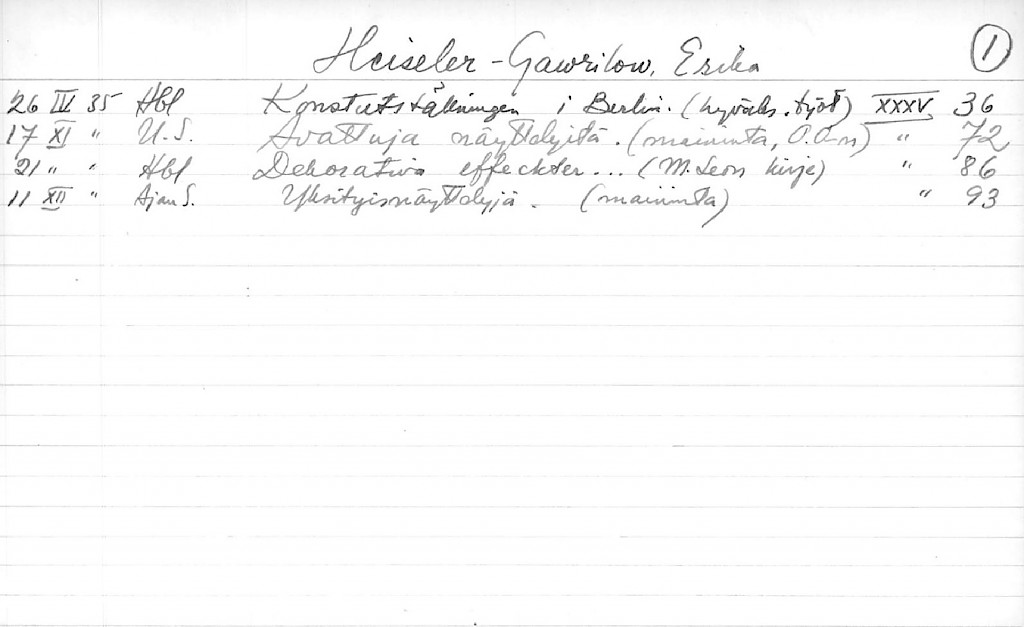 Heiseler-Gawrilow, Erika 1
26 IV 35 Hbl Konstutställningen i Berlin. (hyväks. työt) XXXV 36
17 XI " U.S. Avattuja näyttelyitä. (maininta, O.A-n) " 72
21 " " Hbl Dekorativa effeckter... (M. Leon kirje) " 86
11 XII " Ajan S. Yksityisnäyttelyjä. (maininta) " 93